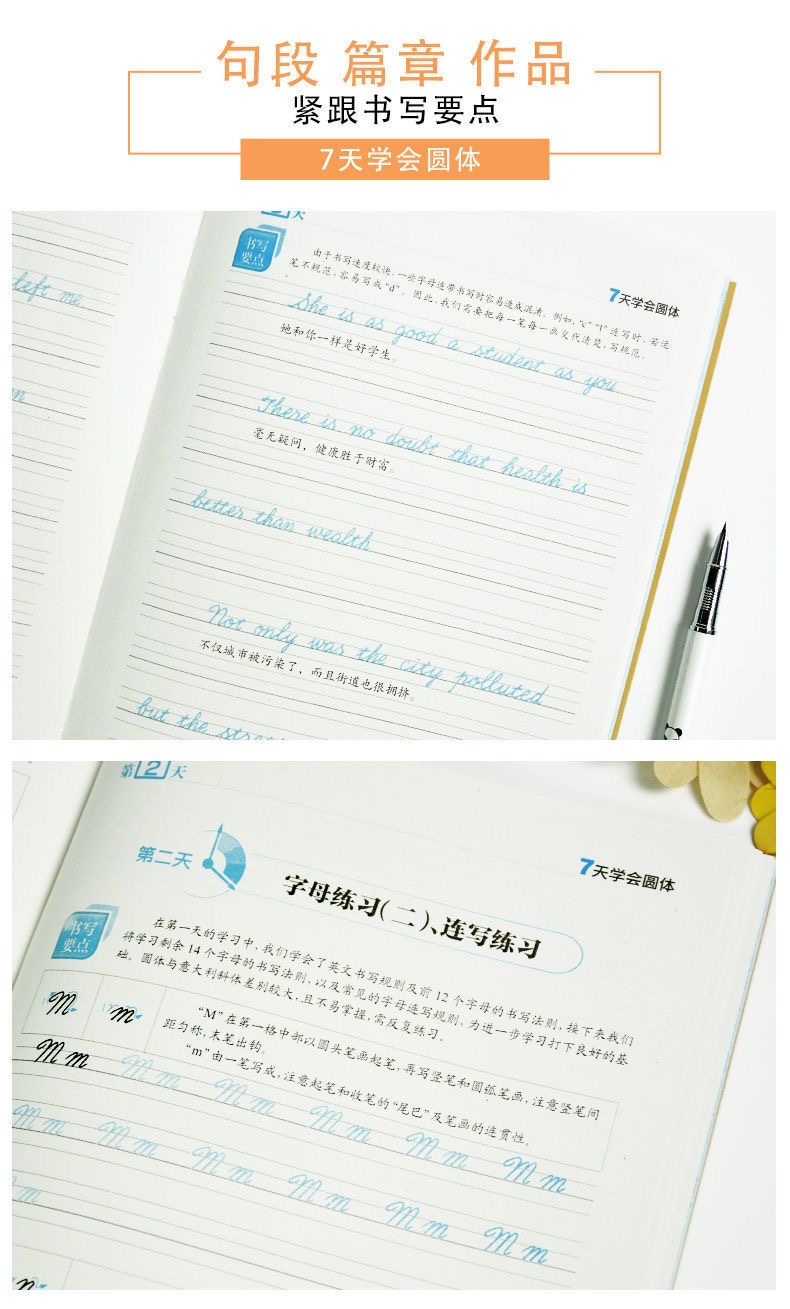 句段 篇章 作品
紧跟书写要点
7天学会圆体
天
书写
要点
7天学会圆体
由于书写速度较快，一些字母连带书写时容易造成混淆。例如，“c”“l”连写时，若运
笔不规范，容易写成“d”。因此，我们需要把每一笔每一画交代清楚，写规范。
left me
She is as good a student as you
她和你一样是好学生。
There is no doubt that health is
毫无疑问，健康胜于财富。
better than wealth
Not only was the city polluted
不仅城市被污染了，而且街道也很拥挤。
but the stree
第2天
第二天
7天学会圆体
字母练习(二)、连写练习
书写
要点
在第一天的学习中，我们学会了英文书写规则及前12个字母的书写法则，接下来我们
将学习剩余14个字母的书写法则，以及常见的字母连写规则，为进一步学习打下良好的基
础。圆体与意大利斜体差别较大，且不易掌握，需反复练习。
M m
“M”在第一格中部以圆头笔画起笔，再写竖笔和圆弧笔画，注意竖笔间
距匀称，末笔出钩。
“m”由一笔写成，注意起笔和收笔的“尾巴”及笔画的连贯性。
M m M m M m M m M m M m
M m M m M m M m M m M m
m